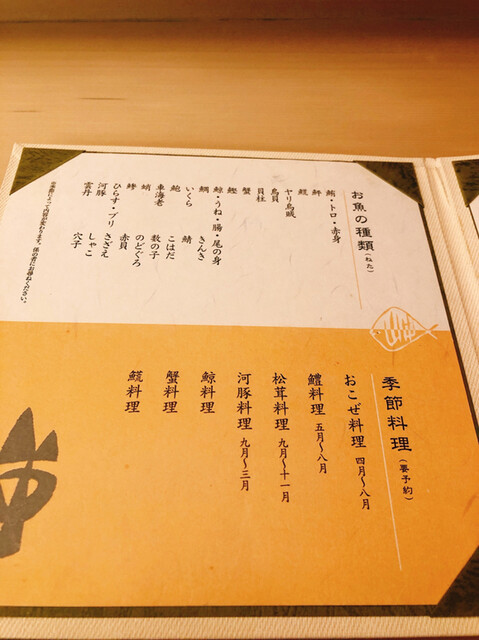 お魚の種類(ねた)
鮪・トロ・赤身
ヤリ烏賊
鳥貝
貝柱
蟹
鰹
鯨・うね・腸・尾の身
鯛 きんき
いくら 鯖
鮑 こはだ
車海老 数の子
蛸 のどぐろ
赤貝
ひらす・ブリ さざえ
河豚 しゃこ
雲丹 穴子
※季節によって内容が変わります。係の者にお尋ねください。
季節料理(要予約)
おこぜ料理 四月〜八月
鱧料理 五月〜八月
松茸料理 九月〜十一月
河豚料理 九月〜三月
鯨料理
蟹料理
料理